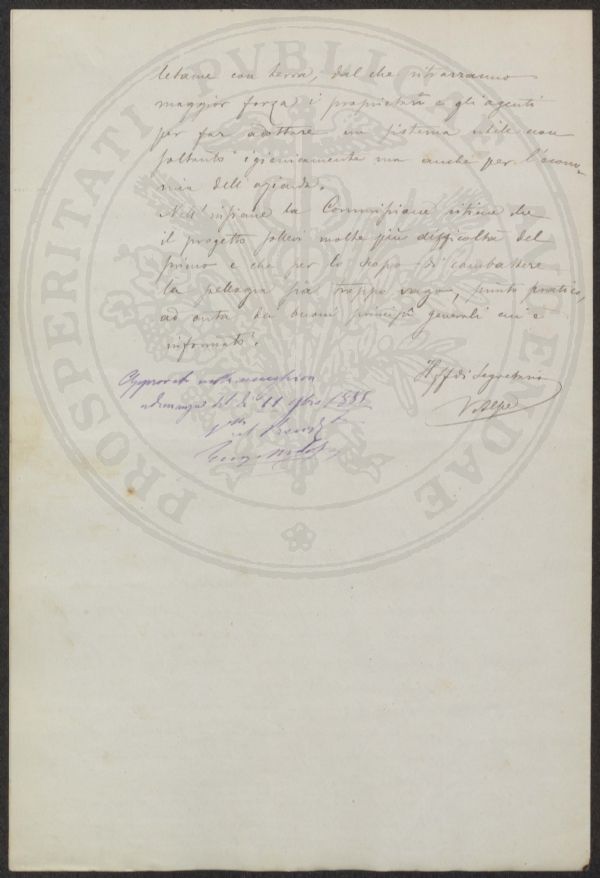 letame con terra, dal che ritrarranno
maggior forza i proprietarii e gli agenti
per far adottare un sistema utile non
soltanto igienicamente ma anche per l'econo-
mia dell'azienda.
Nell'insieme la Commissione ritiene che
il progetto sollevi molte più difficoltà del
primo e che per lo scopo di combattere
la pellagra sia troppo vago, punto pratico,
ad onta dei buoni principii generali cui è
informato.
Il ff di Segretario
V. Alpe
Approvato nella
adunanza del dì 11 1885
Il
PROSPERITATI PVBLICAE AVGENDAE